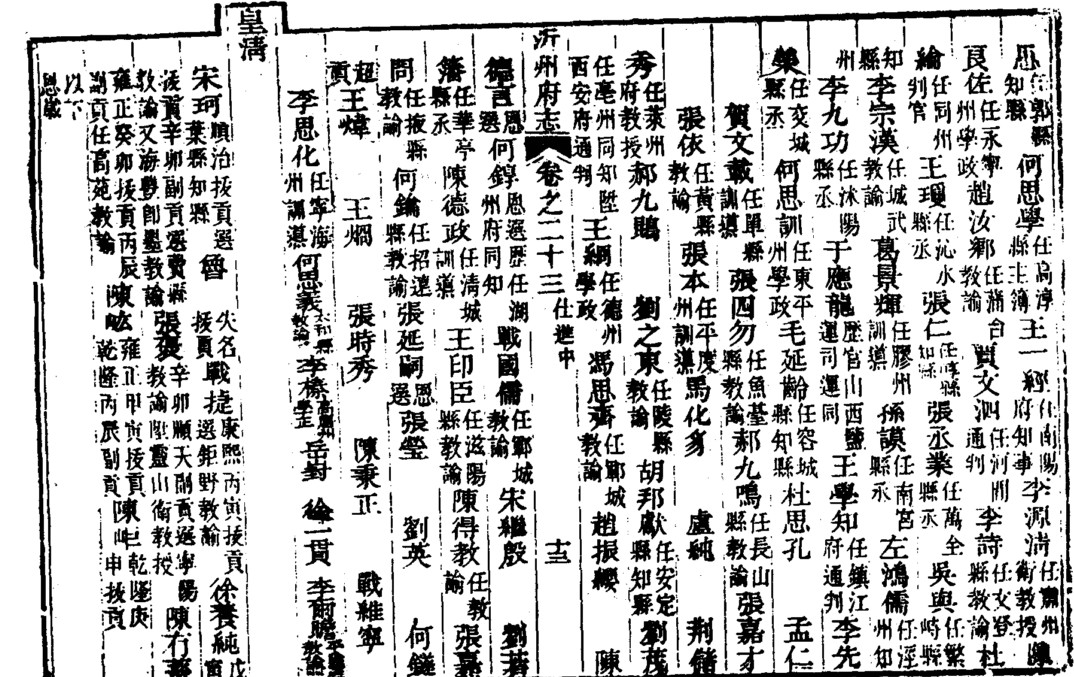 恩任郭縣知縣何思學任高淳縣主簿王一經任南陽府知事李源清任肅州衛教授陳
良佐任永寧州學政趙汝鄉任蒲台教諭賈文泗任河間通判李詩任文登縣教諭杜
綸任同州判官王璦任沁水縣丞張仁知縣張丞業任萬全縣丞吳與任繁峙縣
知縣李宗漢任城武教諭葛景輝任膠州訓導孫謨任南宮縣丞左鴻儒任涇州知
州李九功任沭陽縣丞于應龍歷官山西鹽運司運同王學知任鎮江府通判李先
榮任交城縣丞何思訓任東平州學政毛延齡任容城縣知縣杜思孔孟仁
賀文載任單縣訓導張四勿任魚臺縣教諭郝九鳴任長山縣教諭張嘉才
張依任黃縣教諭張本任平度州訓導馬化豸盧純荆儲
秀任萊州府教授郝九賜劉之東任陵縣教諭胡邦獻任安定縣知縣劉茂
任亳州同知陞西安府通判王綱任德州學政馮思齊任鄆城教諭趙振纓陳
沂州府志卷之二十三仕進中十三
德言恩選何錞恩選歷任湖州府同知戰國儒任鄆城教諭宋繼殷劉若
籓任華亭縣丞陳德政任清城訓導王印臣任滋陽縣教諭陳得教任教諭張嘉
問任掖縣教諭何鑰任招遠縣教諭張延嗣恩選張瑩劉英何鐩
超貢王煒王烱張時秀陳秉正戰維寧
李思化任寧海州訓導何思義太和縣教諭李榛高唐州學正岳對徐一貫李爾瞻教諭
皇清
宋珂順治拔貢選葉縣知縣曾失名拔貢戰捷康熙丙寅拔貢選鉅野教諭徐養純戊
拔貢辛卯副貢選費縣教諭又海豐即墨教諭張辛卯順天副貢選寧陽教諭陞靈山衛教授陳有
雍正癸卯拔貢丙辰副貢任高苑教諭陳雍正甲寅拔貢乾隆丙辰副貢陳乾隆庚申拔貢
以下
恩歲